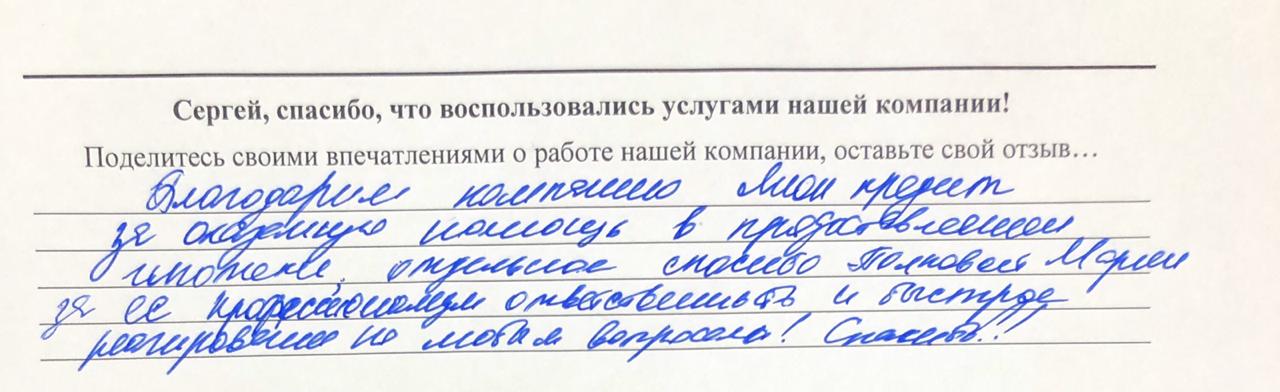 Сергей, спасибо, что воспользовались услугами нашей компании!
Поделитесь своими впечатлениями о работе нашей компании, оставьте свой отзыв…
Благодарим компанию кредит
за оказанную помощь в предоставлении
ипотеки, отдельное спасибо Полковой Марии
за ее профессионализм ответственность и быстрое
реагирование по любым вопросам! Спасибо!!